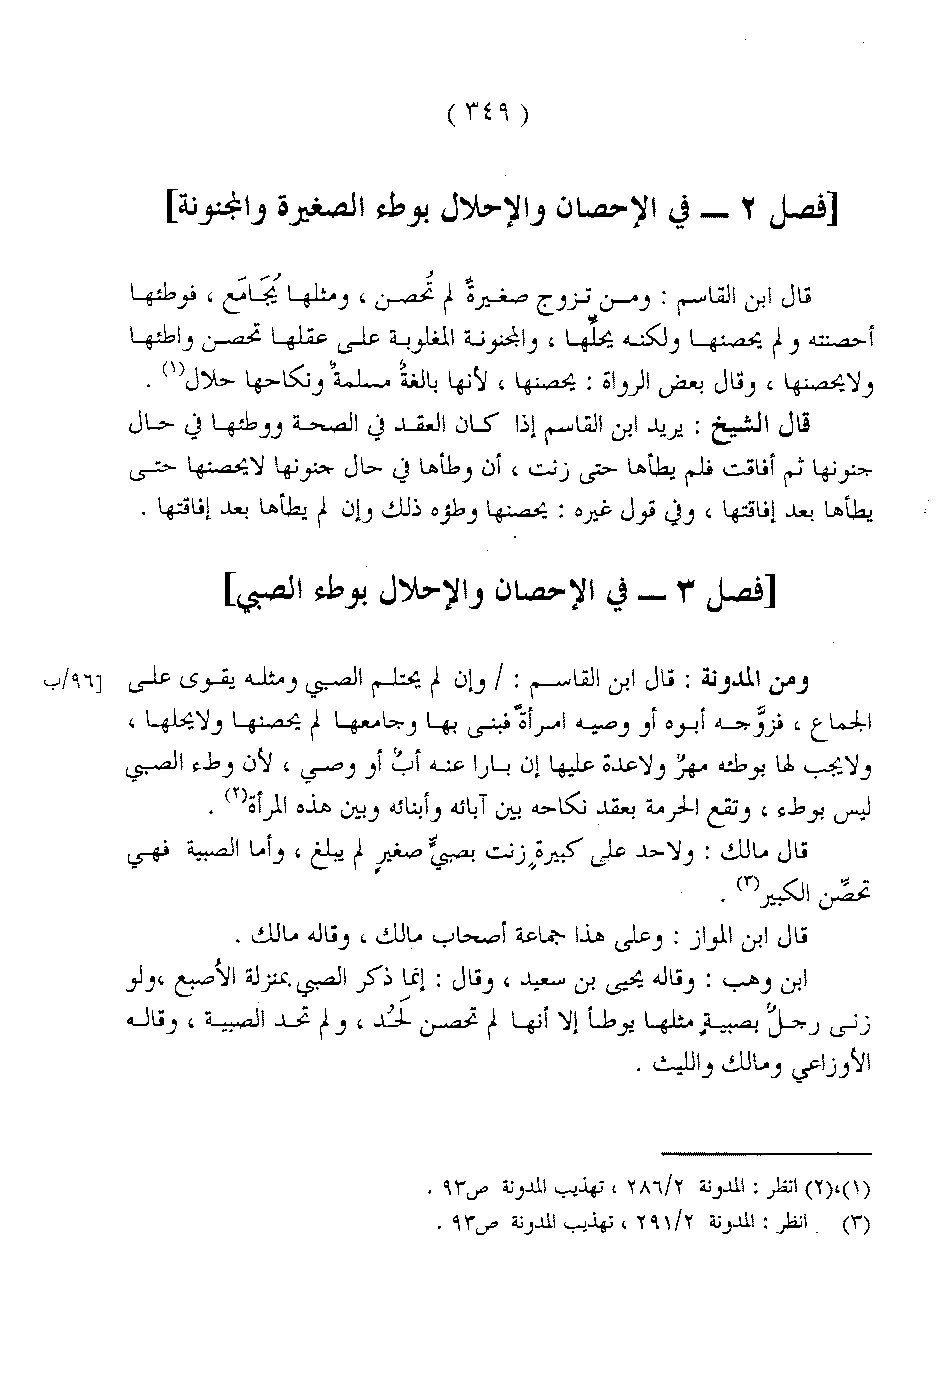 ( ٣٤٩ )
[فصل ٢ ـ في الإحصان والإحلال بوطء الصغيرة والمجنونة]
قال ابن القاسم : ومن تزوج صغيرةً لم تُحصن ، ومثلها يُجَامَع ، فوطئها
أحصنته و لم يحصنها ولكنه يحلّها ، والمجنونة المغلوبة على عقلها تحصن واطئها
ولايحصنها ، وقال بعض الرواة : يحصنها ، لأنها بالغةٌ مسلمةٌ ونكاحها حلال(١) .
قال الشيخ : يريد ابن القاسم إذا كان العقد في الصحة ووطئها في حال
جنونها ثم أفاقت فلم يطأها حتى زنت ، أن وطأها في حال جنونها لايحصنها حتى
يطأها بعد إفاقتها ، وفي قول غيره : يحصنها وطؤه ذلك وإن لم يطأها بعد إفاقتها .
[فصل ٣ ـ في الإحصان والإحلال بوطء الصبي]
ومن المدونة : قال ابن القاسم : / وإن لم يحتلم الصبي ومثله يقوى على [٩٦/ب
الجماع ، فزوَّجه أبوه أو وصيه امرأةً فبنى بها وجامعها لم يحصنها ولايحلها ،
ولايجب لها بوطئه مهرٌ ولاعدة عليها إن بارا عنه أبٌ أو وصي ، لأن وطء الصبي
ليس بوطء ، وتقع الحرمة بعقد نكاحه بين آبائه وأبنائه وبين هذه المرأة(٢) .
قال مالك : ولاحد على كبيرةٍ زنت بصبيٍّ صغيرٍ لم يبلغ ، وأما الصبية فهي
تحصِّن الكبير(٣) .
قال ابن المواز : وعلى هذا جماعة أصحاب مالك ، وقاله مالك .
ابن وهب : وقاله يحيى بن سعيد ، وقال : إنما ذكر الصبي بمنزلة الأصبع ،ولو
زنى رجلٌ بصبيةٍ مثلها يوطأ إلا أنها لم تحصن لحُدَ ، و لم تحد الصبية ، وقاله
الأوزاعي ومالك والليث .
(١)،(٢) انظر : المدونة ٢٨٦/٢ ، تهذيب المدونة ص٩٣ .
(٣) انظر : المدونة ٢٩١/٢ ، تهذيب المدونة ص٩٣ .